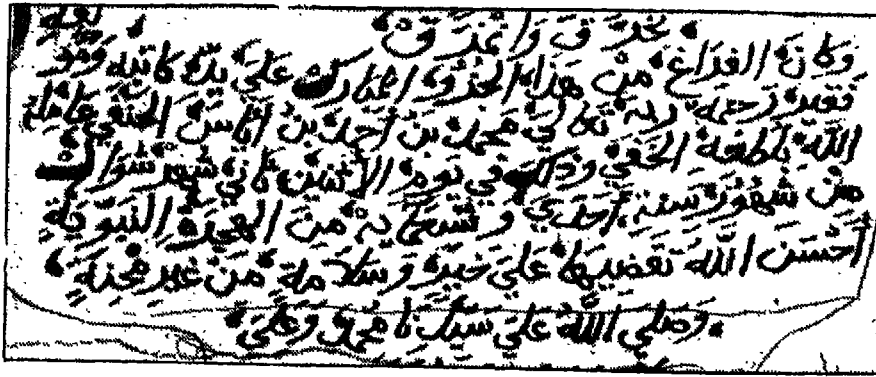 تحرق واغدق
وكان الفراغ من هذا الجزو المبارك علي يد كاتبه وهو
فقير رحمة ربه تعالي محمد بن أحمد بن أناس الحنفي عامله
الله بلطفه الخفي وذلك في يوم الاثنين ثاني شهر شوال
من شهور سنة احدي و تسعماية من الهجرة النبوية
أحسن الله تقضيها علي خير و سلامة من غير محنة
وصلي الله علي سيدنا محمد وعلي